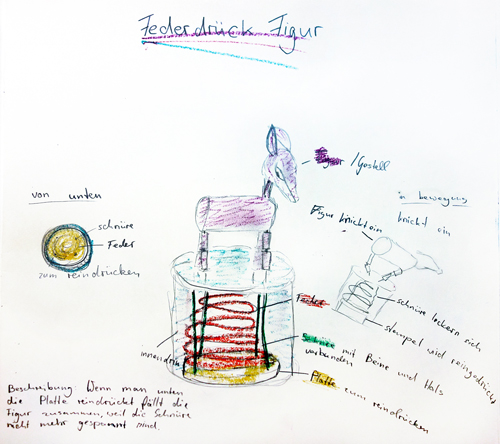 Federdrück Figur
Figur /Gestell
von unten
in bewegung
schnüre
Feder
zum reindrücken
Figur knickt ein
knickt ein
schnüre lockern sich
stempel wird reingedrückt
Feder
Schnüre mit Beine und Hals
verbunden
Platte zum reindrücken
Beschreibung: Wenn man unten
die Platte reindrückt fällt die
Figur zusammen, weil die Schnüre
nicht mehr gespannt sind.